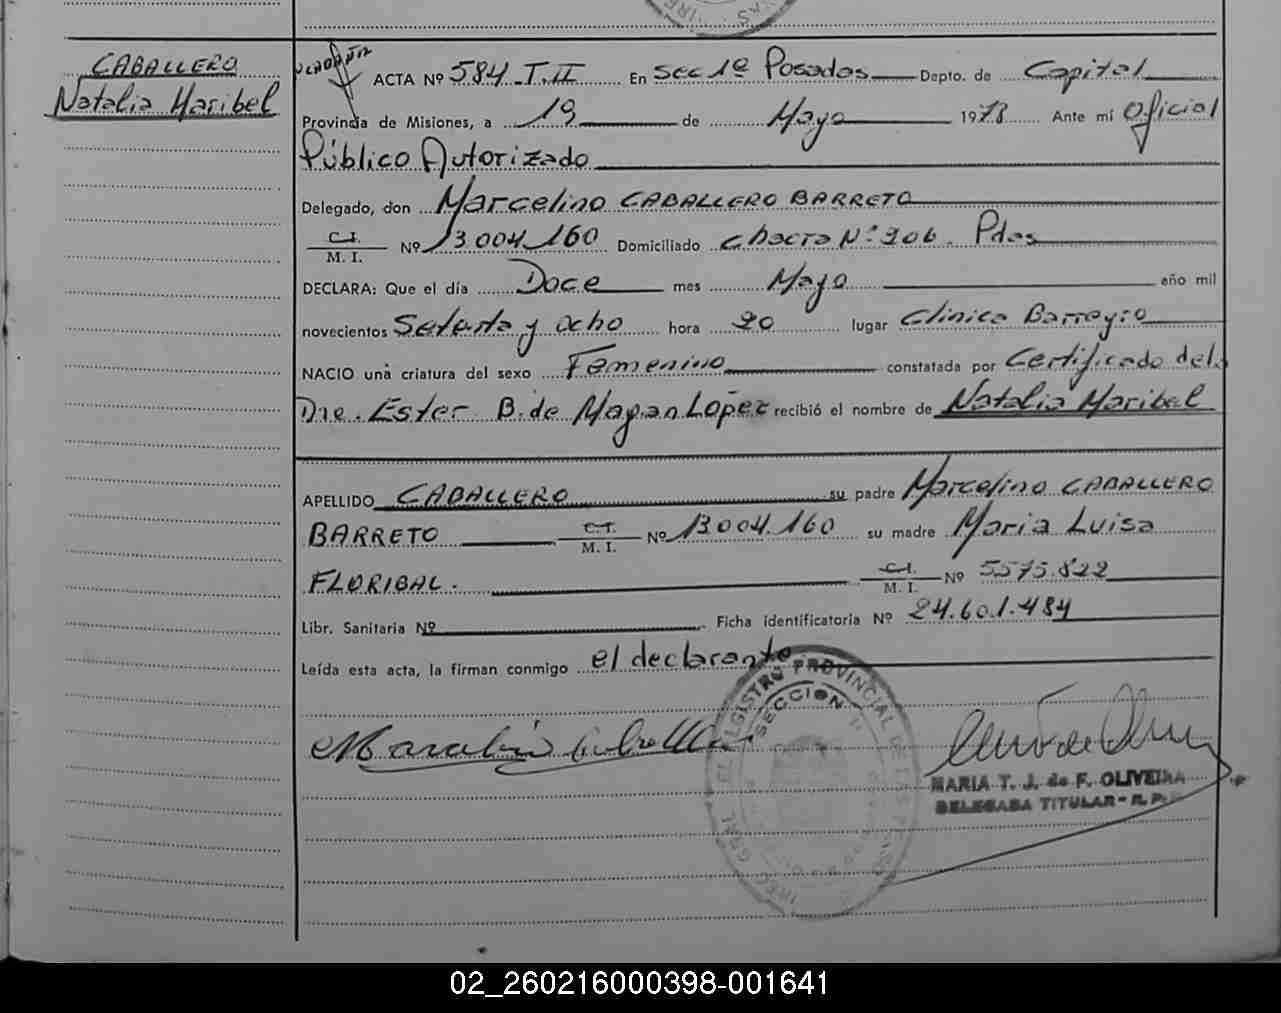 CABALLERO
Natalia Maribel
ACTA Nº 584 T.II En Sec 1º Posadas Depto. de Capital
Provincia de Misiones, a 19 de Mayo 1978 Ante mi Oficial
Público Autorizado
Delegado, don Marcelino CABALLERO BARRETO
C.I.
M. I. Nº 13.004.160 Domiciliado Chacra Nº 206. Pdas
DECLARA: Que el día Doce mes Mayo año mil
novecientos Setenta y ocho hora 20 lugar Clinica Barreyro
NACIO una criatura del sexo Femenino constatada por Certificado del
Dra. Ester B. de Magan Lopez recibió el nombre de Natalia Maribel
APELLIDO CABALLERO su padre Marcelino CABALLERO
BARRETO C.I. M. I. Nº 13.004.160 su madre Maria Luisa
FLORIBAL. C.I. M. I. Nº 5.575.822
Libr. Sanitaria Nº Ficha identificatoria Nº 24.601.484
Leída esta acta, la firman conmigo el declarante
REGISTRO PROVINCIAL DE LAS PERSONAS
SECCION
MARIA T. J. de F. OLIVEIRA
DELEGADA TITULAR - R. P. P.
02_260216000398-001641